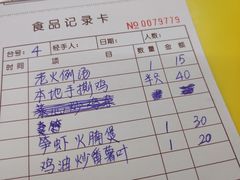 食品记录卡
№ 0079779
台号: 4 经手人: 日期: 人数:
时间 项目 数量 金额
老火例汤 1 15
本地手撕鸡 半只 40
笋虾火腩煲 1 30
鸡油炒番薯叶 1 20